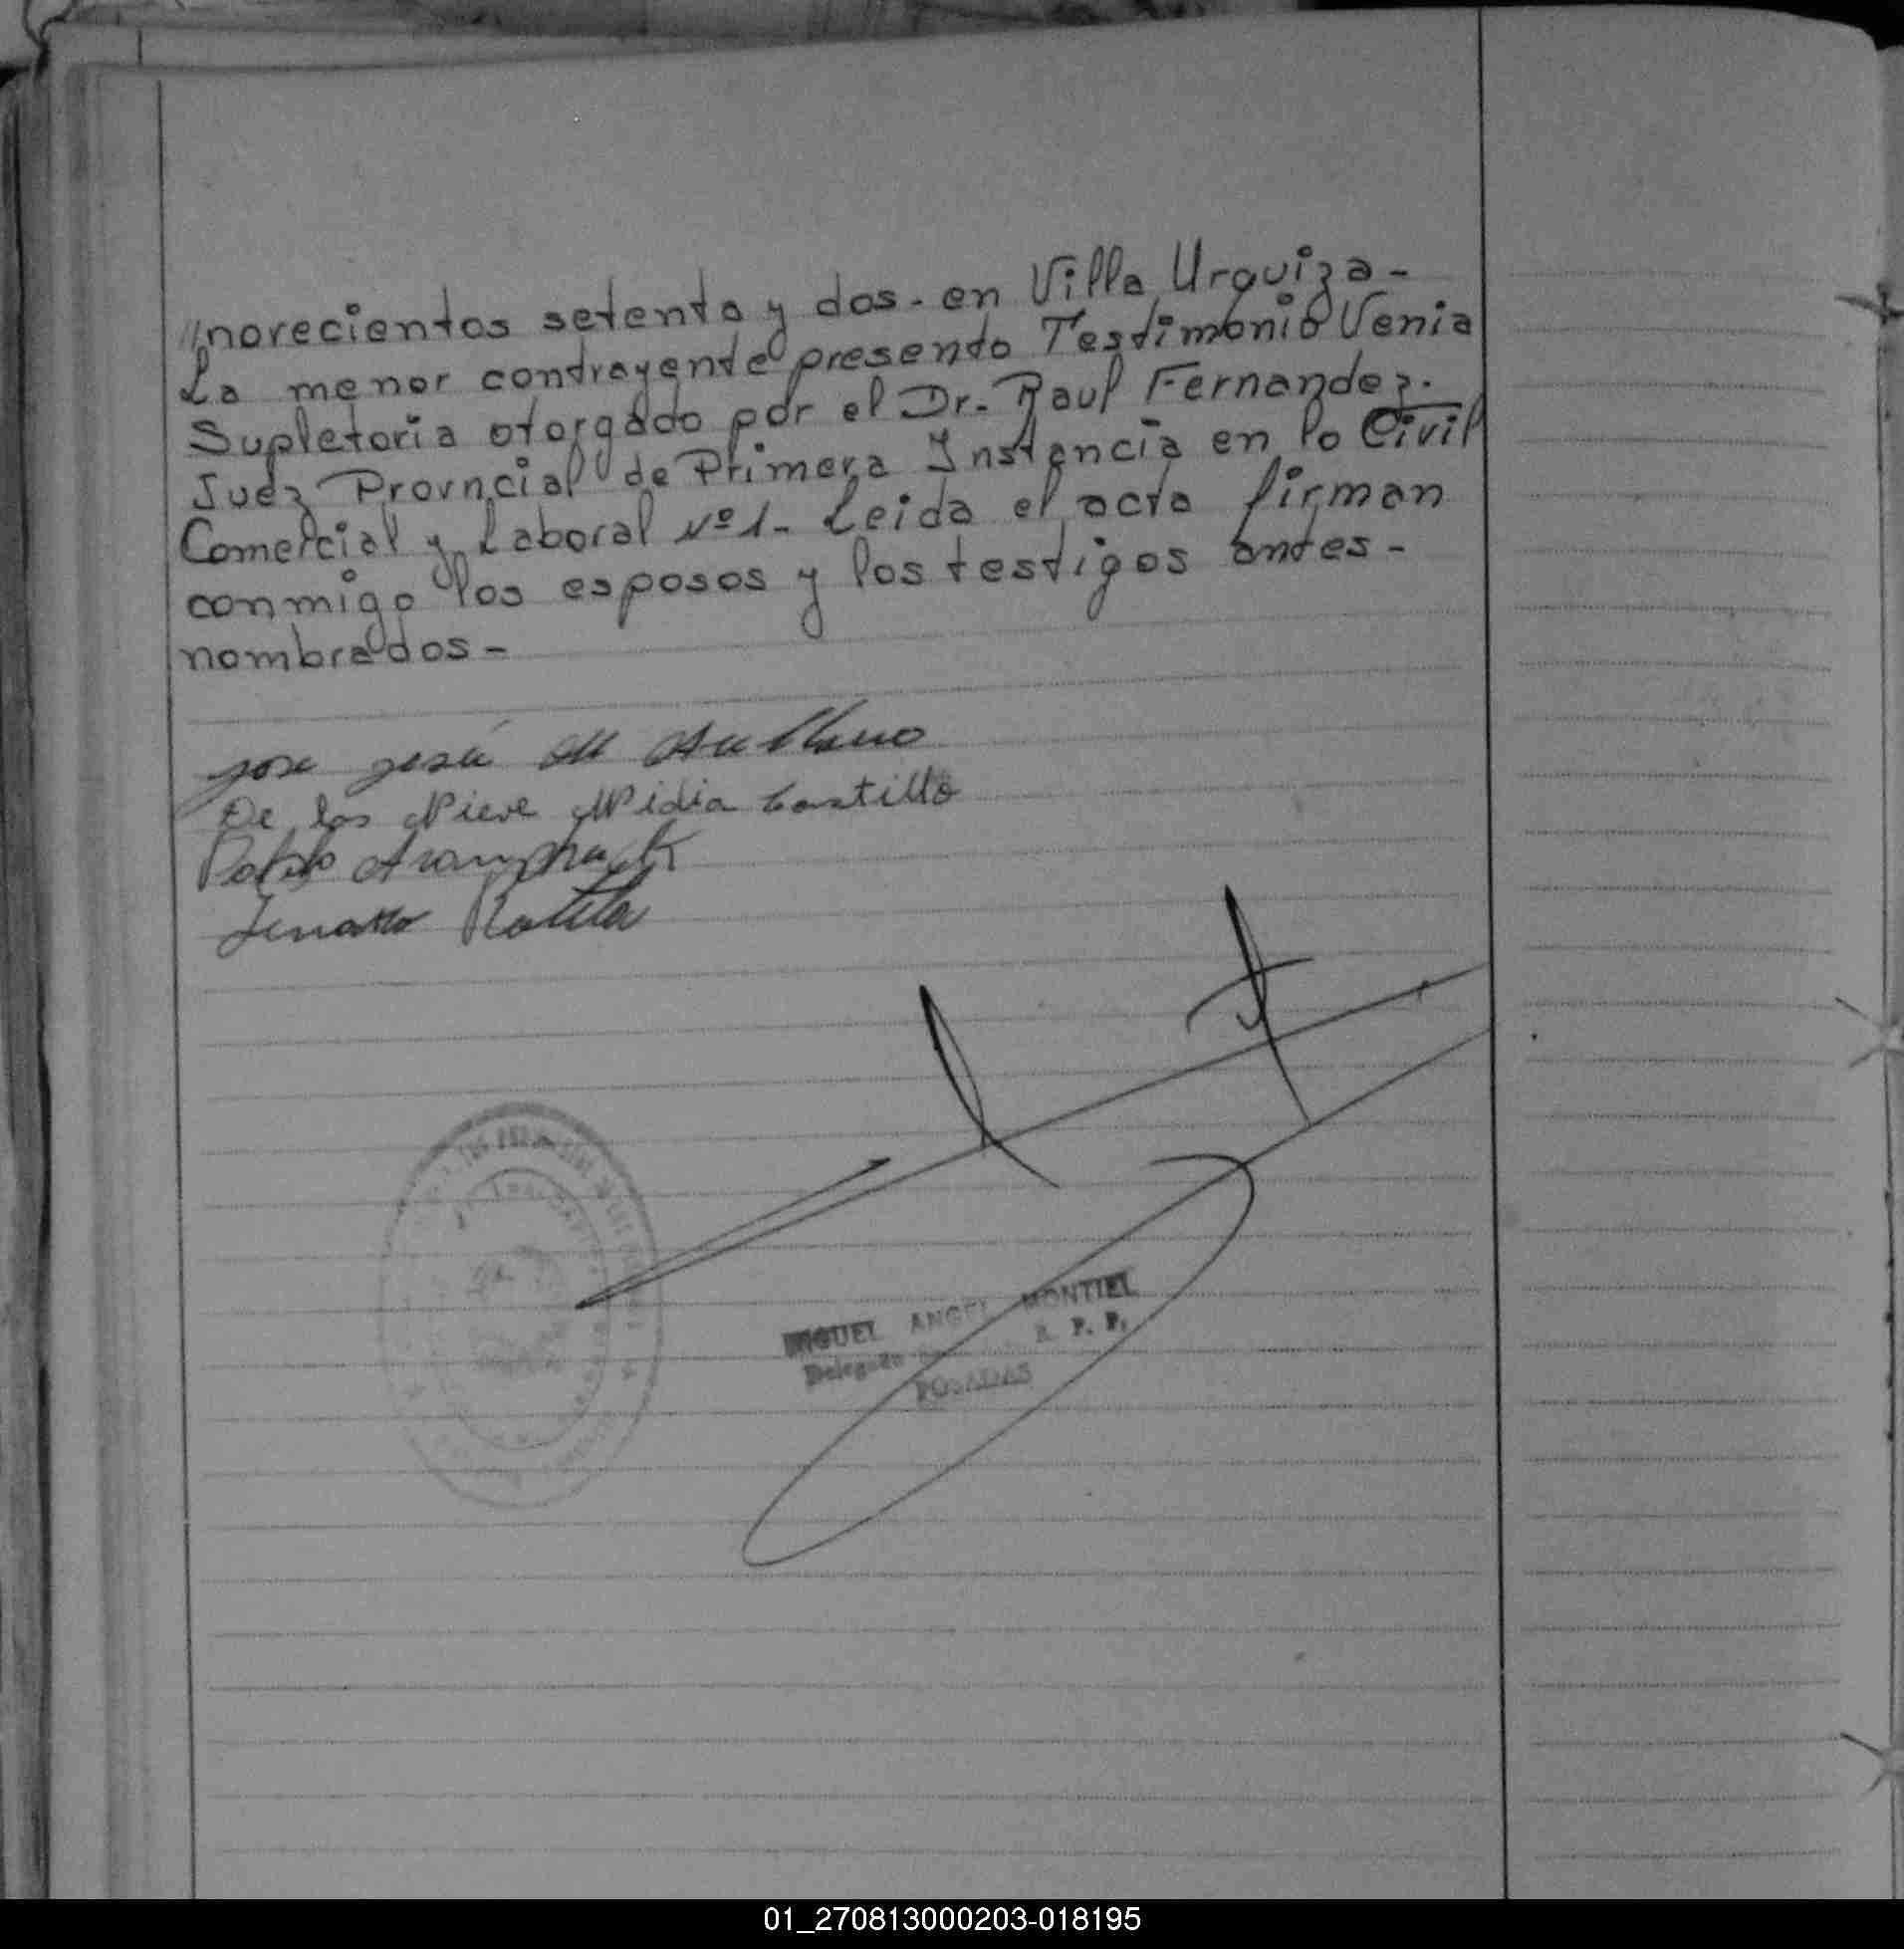 //norecientos setenta y dos- en Villa Urquiza-
La menor contrayente presento Testimonio Venia
Supletoria otorgado por el Dr. Raul Fernandez.
Juez Provncial de Primera Instancia en lo Civil
Comercial y Laboral Nº 1- Leida el acta firman
conmigo los esposos y los testigos antes-
nombrados-
Jose Jesú
De las Nieve Nidia Castillo
Pablo
MIGUEL ANGEL MONTIEL
Delegado R. P. P.
POSADAS
01_270813000203-018195